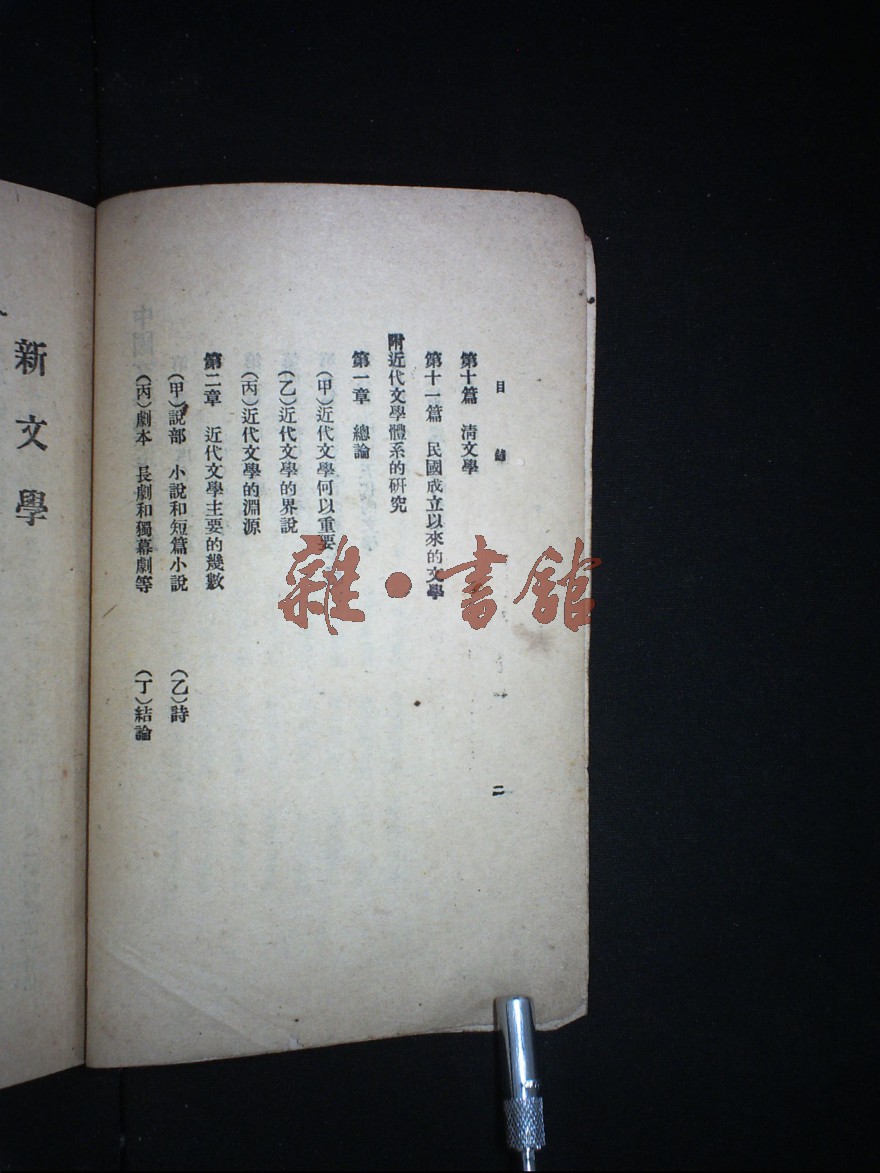 目錄
二
第十篇　清文學
第十一篇　民國成立以來的文學
附近代文學體系的研究
第一章　總論
（甲）近代文學何以重要
（乙）近代文學的界說
（丙）近代文學的淵源
第二章　近代文學主要的幾數
（甲）說部　小說和短篇小說　（乙）詩
（丙）劇本　長劇和獨幕劇等　（丁）結論
新文學
雜·書館